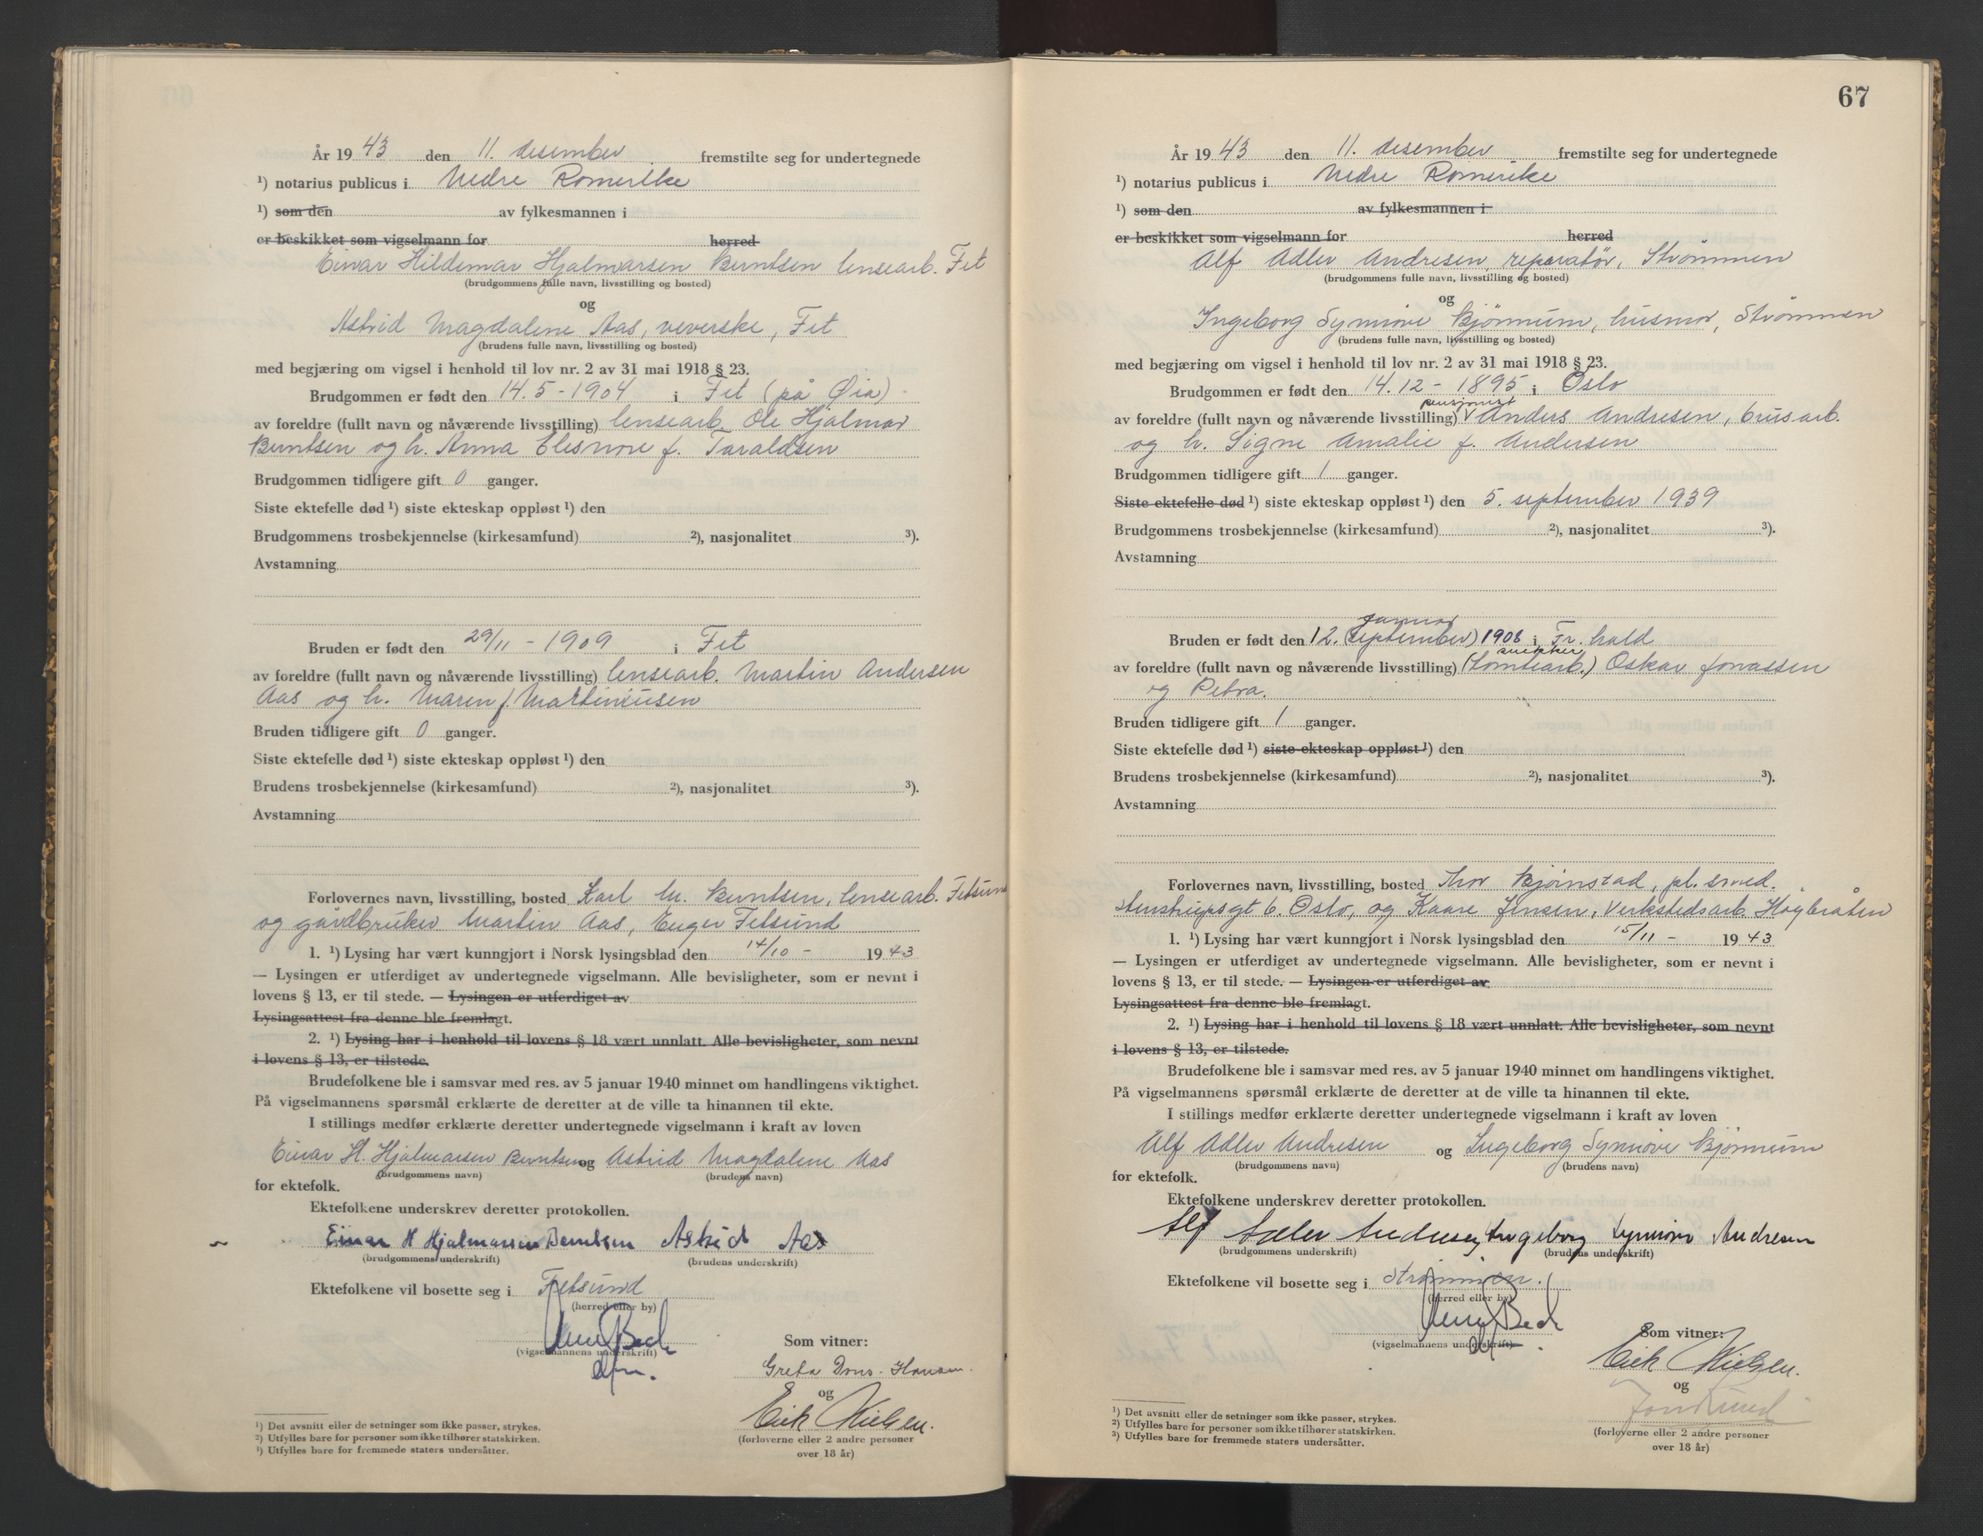 År 1943 den 11. desember fremstilte seg for undertegnede
¹) notarius publicus i Nedre Romerike
¹) som den av fylkesmannen i
er beskikket som vigselmann for herred
Einar Hildemar Hjalmarsen Berntsen lensearb. Fet
(brudgommens fulle navn, livsstilling og bosted)
og
Astrid Magdalene Aas, veverske, Fet
(brudens fulle navn, livsstilling og bosted)
med begjæring om vigsel i henhold til lov nr. 2 av 31 mai 1918 § 23.
Brudgommen er født den 14.5-1904 i Fet (på Øia)
av foreldre (fullt navn og nåværende livsstilling) lensearb. Ole Hjalmar
Berntsen og h. Anna Elesnore f. Taraldsen
Brudgommen tidligere gift 0 ganger.
Siste ektefelle død ¹) siste ekteskap oppløst ¹) den
Brudgommens trosbekjennelse (kirkesamfund) ²), nasjonalitet ³).
Avstamning
Bruden er født den 29/11 - 1909 i Fet
av foreldre (fullt navn og nåværende livsstilling) lensearb. Martin Andersen
Aas og h. Maren f. Martiniusen
Bruden tidligere gift 0 ganger.
Siste ektefelle død ¹) siste ekteskap oppløst ¹) den
Brudens trosbekjennelse (kirkesamfund) ²), nasjonalitet ³).
Avstamning
Forlovernes navn, livsstilling, bosted Karl M. Berntsen, lensearb. Fetsund
og gårdbruker Martin Aas, Enger Fetsund
1. ¹) Lysing har vært kunngjort i Norsk lysingsblad den 14/10 - 1943
— Lysingen er utferdiget av undertegnede vigselmann. Alle bevisligheter, som er nevnt i
lovens § 13, er til stede. — Lysingen er utferdiget av
Lysingsattest fra denne ble fremlagt.
2. ¹) Lysing har i henhold til lovens § 18 vært unnlatt. Alle bevisligheter, som nevnt
i lovens § 13, er tilstede.
Brudefolkene ble i samsvar med res. av 5 januar 1940 minnet om handlingens viktighet.
På vigselmannens spørsmål erklærte de deretter at de ville ta hinannen til ekte.
I stillings medfør erklærte deretter undertegnede vigselmann i kraft av loven
Einar H. Hjalmarsen Berntsen og Astrid Magdalene Aas
(brudgommens navn) (brudens navn)
for ektefolk.
Ektefolkene underskrev deretter protokollen.
Einar H Hjalmarsen Berntsen Astrid Aas
(brudgommens underskrift) (brudens underskrift)
Ektefolkene vil bosette seg i Fetsund
(herred eller by)
Bech
(vigselmannens underskrift)
Som vitner:
Greta Dons-Hansen.
og
Eick Nielsen.
(forloverne eller 2 andre personer
over 18 år)
¹) Det avsnitt eller de setninger som ikke passer, strykes.
²) Utfylles bare for personer som ikke tilhører statskirken.
³) Utfylles bare for fremmede staters undersåtter.
67
År 1943 den 11. desember fremstilte seg for undertegnede
¹) notarius publicus i Nedre Romerike
¹) som den av fylkesmannen i
er beskikket som vigselmann for herred
Alf Adler Andresen, reparatør, Strømmen
(brudgommens fulle navn, livsstilling og bosted)
og
Ingeborg Synnøve Bjørnum, husmor, Strømmen
(brudens fulle navn, livsstilling og bosted)
med begjæring om vigsel i henhold til lov nr. 2 av 31 mai 1918 § 23.
Brudgommen er født den 14.12 - 1895 i Oslo
pensjonist
av foreldre (fullt navn og nåværende livsstilling) Anders Andresen, brusarb.
og h. Signe Amalie f. Andersen
Brudgommen tidligere gift 1 ganger.
Siste ektefelle død ¹) siste ekteskap oppløst ¹) den 5. september 1939
Brudgommens trosbekjennelse (kirkesamfund) ²), nasjonalitet ³).
Avstamning
januar
Bruden er født den 12. (september) 1908 i Fr. hald
snekker
av foreldre (fullt navn og nåværende livsstilling) (Tomtearb.) Oskar Jonassen
og Petra.
Bruden tidligere gift 1 ganger.
Siste ektefelle død ¹) siste ekteskap oppløst ¹) den
Brudens trosbekjennelse (kirkesamfund) ²), nasjonalitet ³).
Avstamning
Forlovernes navn, livsstilling, bosted Thor Bjørnstad, pl. smed.
Stenstrupsgt 6. Oslo, og Kaare Jensen, Verkstedsarb. Høybråten
1. ¹) Lysing har vært kunngjort i Norsk lysingsblad den 15/11 - 1943
— Lysingen er utferdiget av undertegnede vigselmann. Alle bevisligheter, som er nevnt i
lovens § 13, er til stede. — Lysingen er utferdiget av
Lysingsattest fra denne ble fremlagt.
2. ¹) Lysing har i henhold til lovens § 18 vært unnlatt. Alle bevisligheter, som nevnt
i lovens § 13, er tilstede.
Brudefolkene ble i samsvar med res. av 5 januar 1940 minnet om handlingens viktighet.
På vigselmannens spørsmål erklærte de deretter at de ville ta hinannen til ekte.
I stillings medfør erklærte deretter undertegnede vigselmann i kraft av loven
Alf Adler Andresen og Ingeborg Synnøve Bjørnum
(brudgommens navn) (brudens navn)
for ektefolk.
Ektefolkene underskrev deretter protokollen.
Alf Adler Andresen, Ingeborg Synnøve Andresen
(brudgommens underskrift) (brudens underskrift)
Ektefolkene vil bosette seg i Strømmen.
(herred eller by)
Bech
(vigselmannens underskrift)
Som vitner:
Eick Nielsen.
og
(forloverne eller 2 andre personer
over 18 år)
¹) Det avsnitt eller de setninger som ikke passer, strykes.
²) Utfylles bare for personer som ikke tilhører statskirken.
³) Utfylles bare for fremmede staters undersåtter.